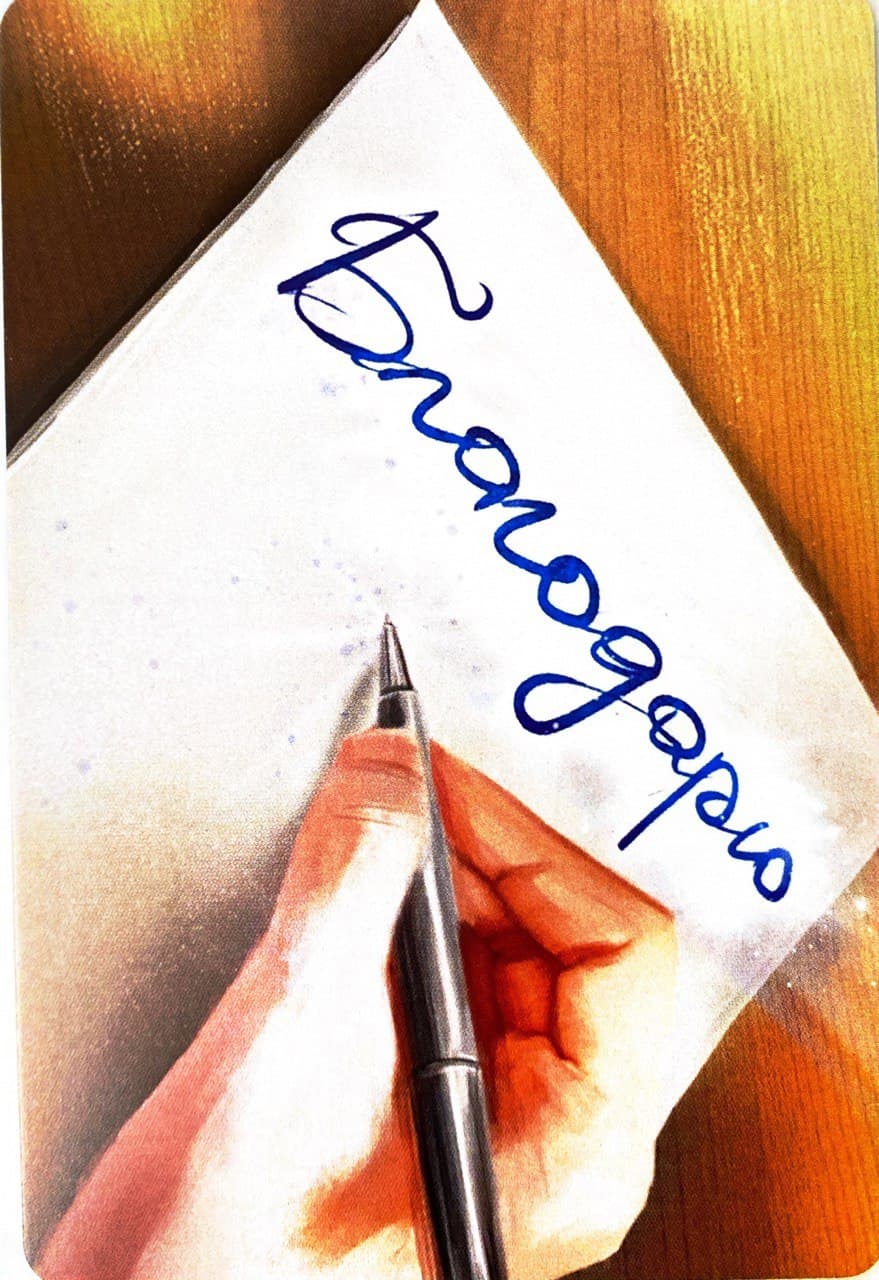 Благодарю